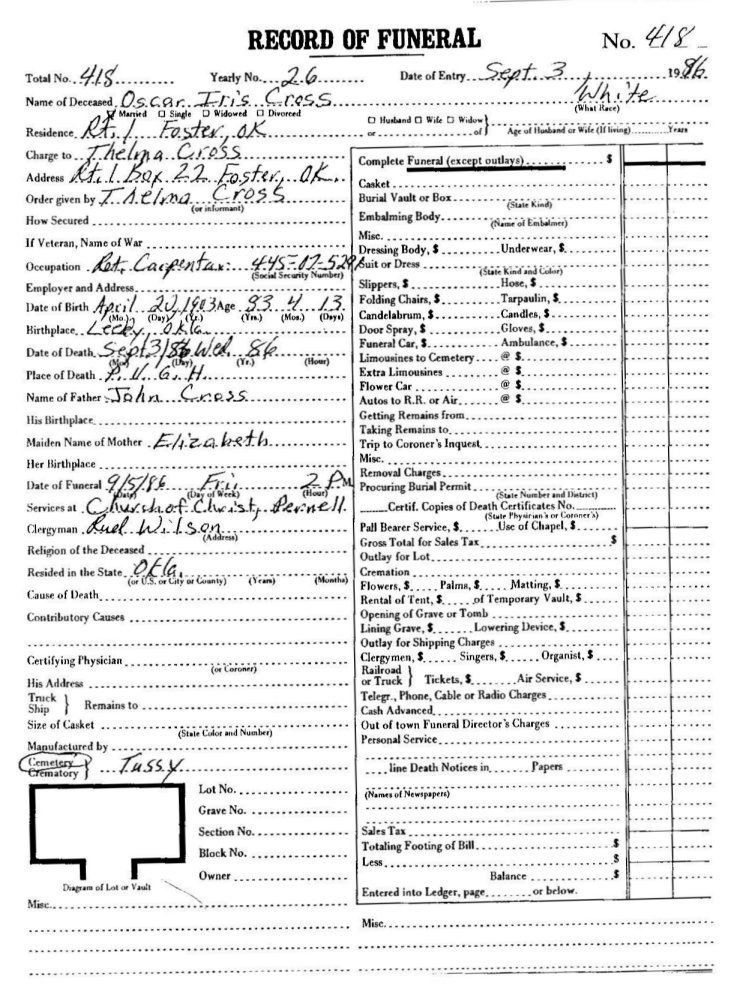 RECORD OF FUNERAL No. 418
Total No. 418 Yearly No. 26 Date of Entry Sept. 3, 1986
Name of Deceased Oscar Iris Cross White
Married Single Widowed Divorced (What Race)
Residence Rt. 1 Foster, OK Husband Wife Widow or of Age of Husband or Wife (If living) Years
Charge to Thelma Cross
Address Rt. 1 Box 22 Foster, OK.
Order given by Thelma Cross
(or informant)
How Secured
If Veteran, Name of War
Occupation Ret. Carpenter: 445-07-529
(Social Security Number)
Employer and Address
Date of Birth April 20, 1903 Age 83 4 13
(Mo.) (Day) (Yr.) (Yrs.) (Mos.) (Days)
Birthplace Okla
Date of Death Sept 3/86 Wed. 86
(Mo) (Day) (Yr.) (Hour)
Place of Death P. V. G. H.
Name of Father John Cross
His Birthplace
Maiden Name of Mother Elizabeth
Her Birthplace
Date of Funeral 9/5/86 Fri 2 P M
(Date) (Day of Week) (Hour)
Services at Church of Christ, Pernell.
Clergyman Ruel Wilson
(Address)
Religion of the Deceased
Resided in the State Okla.
(or U.S. or City or County) (Years) (Months)
Cause of Death
Contributory Causes
Certifying Physician
(or Coroner)
His Address
Truck
Ship } Remains to
Size of Casket
(State Color and Number)
Manufactured by
Cemetery
Crematory } Tussy
Lot No.
Grave No.
Section No.
Block No.
Owner
Diagram of Lot or Vault
Misc.
Complete Funeral (except outlays) $
Casket
Burial Vault or Box
(State Kind)
Embalming Body
(Name of Embalmer)
Misc.
Dressing Body, $ Underwear, $
Suit or Dress
(State Kind and Color)
Slippers, $ Hose, $
Folding Chairs, $ Tarpaulin, $
Candelabrum, $ Candles, $
Door Spray, $ Gloves, $
Funeral Car, $ Ambulance, $
Limousines to Cemetery @ $
Extra Limousines @ $
Flower Car @ $
Autos to R.R. or Air @ $
Getting Remains from
Taking Remains to
Trip to Coroner's Inquest
Misc.
Removal Charges
Procuring Burial Permit
(State Number and District)
Certif. Copies of Death Certificates No.
(State Physician's or Coroner's)
Pall Bearer Service, $ Use of Chapel, $
Gross Total for Sales Tax $
Outlay for Lot
Cremation
Flowers, $ Palms, $ Matting, $
Rental of Tent, $ of Temporary Vault, $
Opening of Grave or Tomb
Lining Grave, $ Lowering Device, $
Outlay for Shipping Charges
Clergymen, $ Singers, $ Organist, $
Railroad
or Truck } Tickets, $ Air Service, $
Telegr., Phone, Cable or Radio Charges
Cash Advanced
Out of town Funeral Director's Charges
Personal Service
line Death Notices in Papers
(Names of Newspapers)
Sales Tax
Totaling Footing of Bill $
Less $
Balance $
Entered into Ledger, page or below.
Misc.